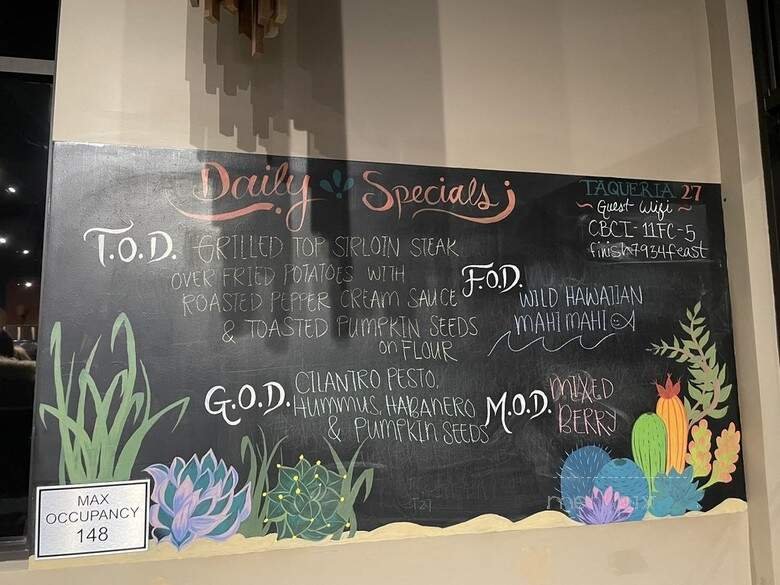 Daily Specials
TAQUERIA 27
~ Guest Wifi ~
CBCI-11FC-5
finish7934feast
T.O.D. GRILLED TOP SIRLOIN STEAK
OVER FRIED POTATOES WITH
ROASTED PEPPER CREAM SAUCE
& TOASTED PUMPKIN SEEDS
on FLOUR
F.O.D.
WILD HAWAIIAN
MAHI MAHI
G.O.D. CILANTRO PESTO,
HUMMUS, HABANERO
& PUMPKIN SEEDS
M.O.D. MIXED
BERRY
T27
MAX
OCCUPANCY
148